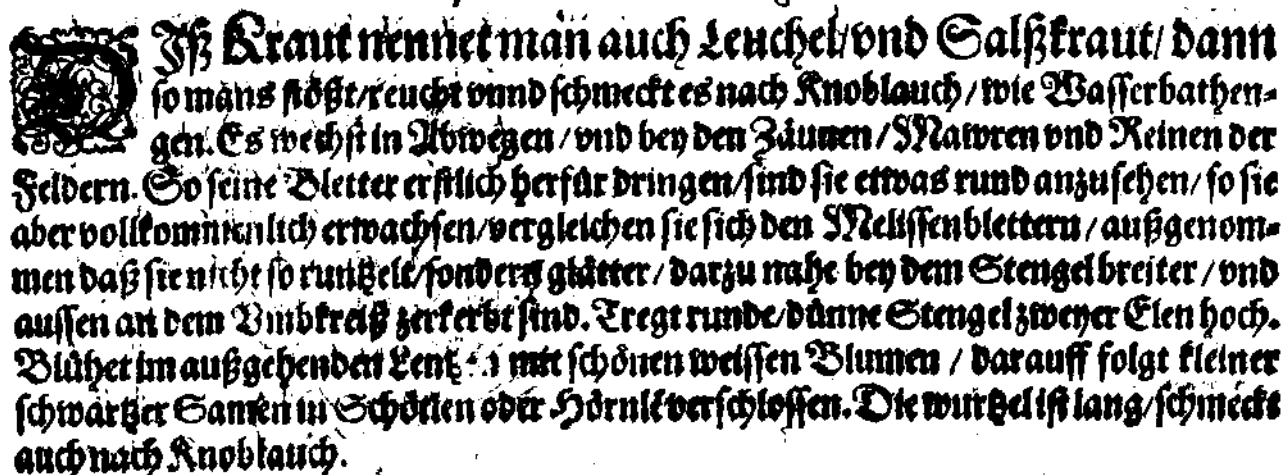 DIß Kraut nennet man auch Leuchel/vnd Salßkraut/ dann
so mans stößt/reucht vnnd schmeckt es nach Knoblauch/wie Wasserbathen-
gen. Es wechst in Abwegen/vnd bey den Zäunen/Mawren vnd Reinen der
Feldern. So seine Bletter erstlich herfür dringen/sind sie etwas rund anzusehen/so sie
aber vollkommenlich erwachsen/vergleichen sie sich den Melissenblettern/außgenom-
men daß sie nicht so runtzelt/sonders glätter/darzu nahe bey dem Stengel breiter/vnd
aussen an dem Vmbkreiß zerkerbt sind. Tregt runde/dünne Stengel zweyer Elen hoch.
Blühet im außgehenden mit schönen weissen Blumen / darauff folgt kleiner
schwartzer Samen in Schötlen oder Hörnle verschlossen. Die wurtzel ist lang/schmeckt
auch nach Knoblauch.